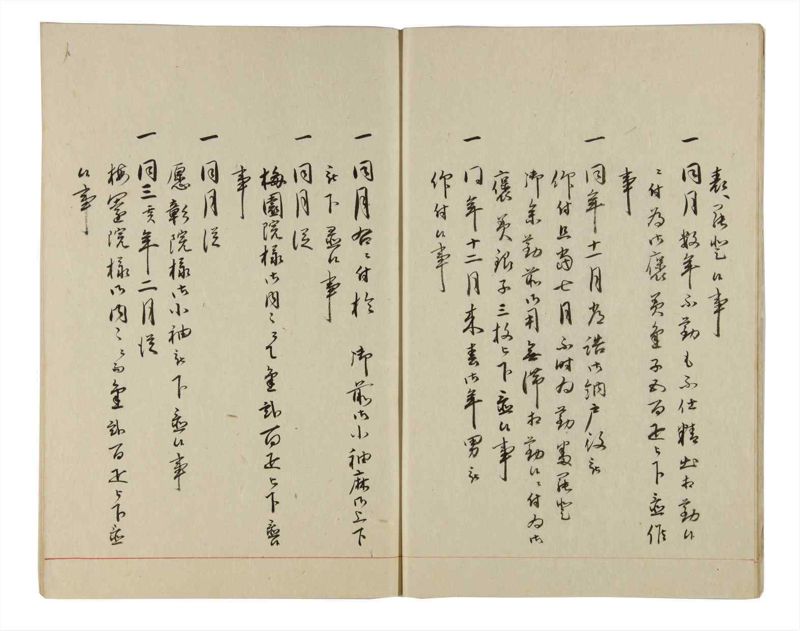 罷登候事
一同月数年不勤も不仕精出相勤候
ニ付為御褒美金子五百疋被下置候
事
一同年十一月定詰御納戸役被
仰付且当七月不時ニ勤番罷登
御参勤前御用無滞相勤候ニ付為御
褒美銀子三枚被下置候事
一同年十二月来春御年男被
仰付候事
一同月右ニ付於 御前御小袖麻御上下
被下置候事
一同月従
梅園院様御内々ニ而金弐百疋被下置
事
一同月従
愿彰院様御小袖被下置候事
一同三亥年二月従
梅園院様御内々ニ而金弐百疋被下置
候事